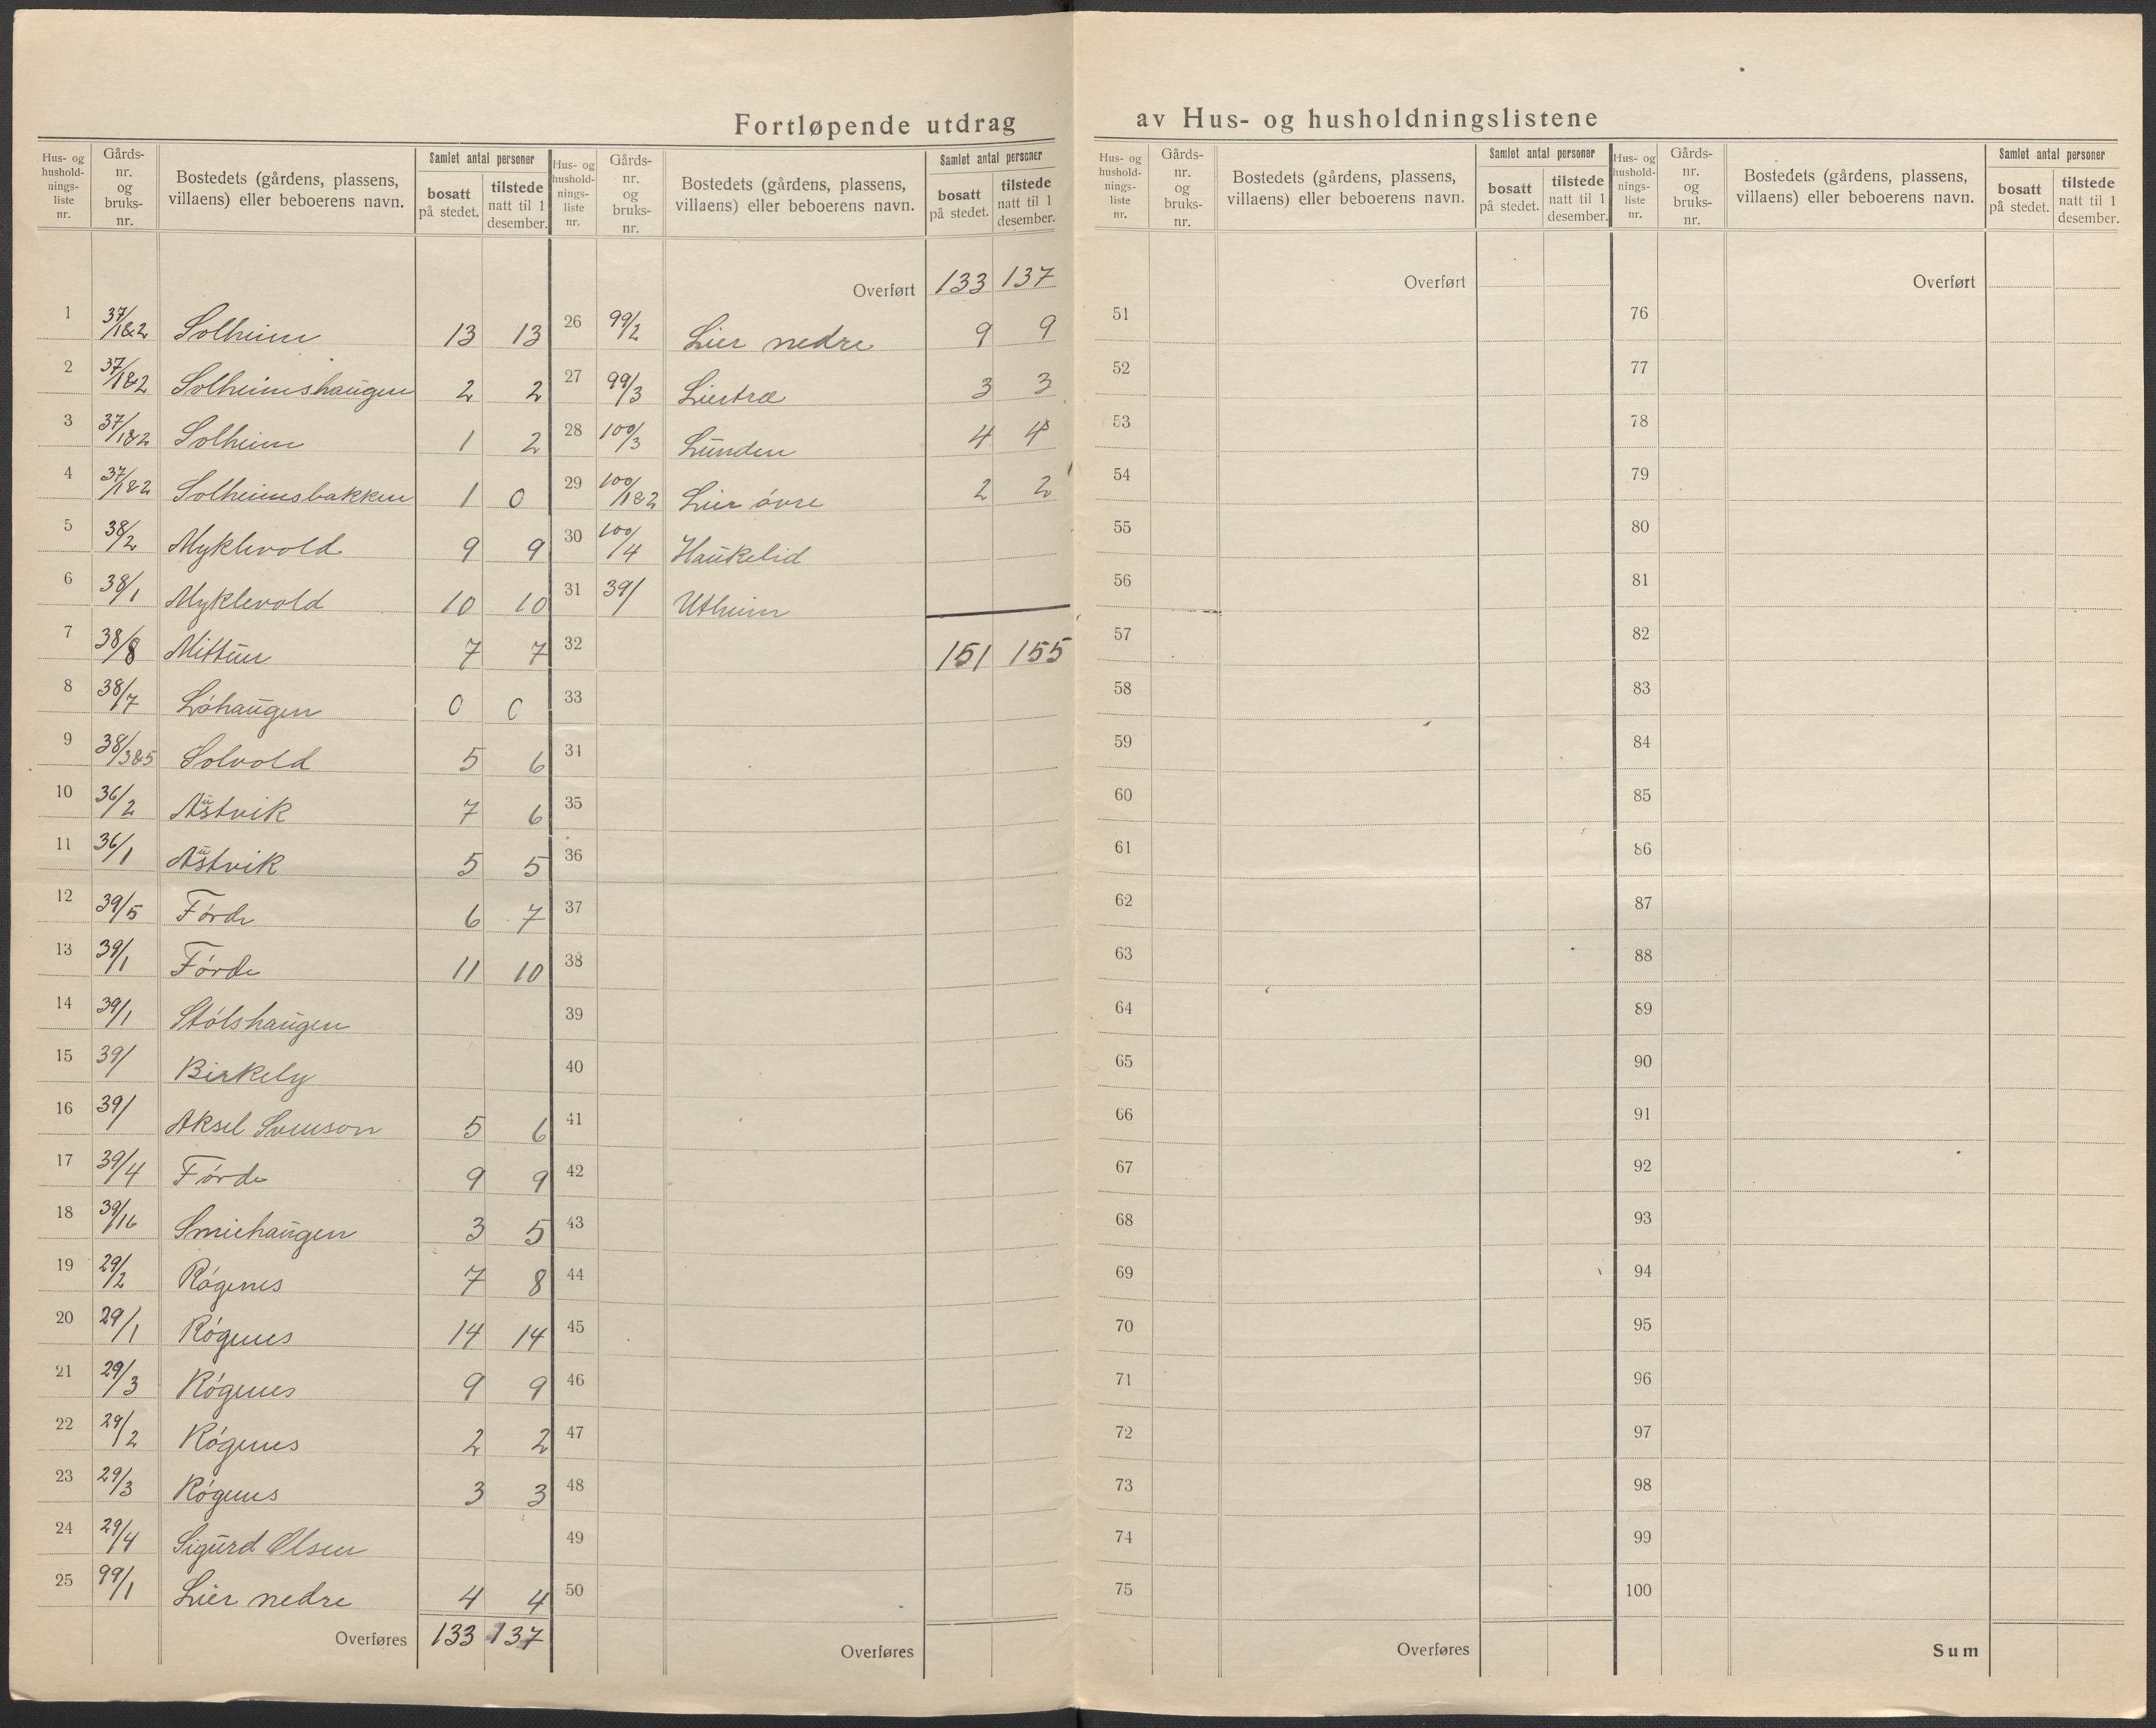 Fortløpende utdrag av Hus- og husholdningslistene
Hus- og hushold- nings- liste nr. Gårds- nr. og bruks- nr. Bostedets (gårdens, plassens, villaens) eller beboerens navn. Samlet antal personer bosatt på stedet. tilstede natt til 1 desember.
1 37/1&2 Solheim 13 13
2 37/1&2 Solheimshaugen 2 2
3 37/1&2 Solheim 1 2
4 37/1&2 Solheimsbakken 1 0
5 38/2 Myklevold 9 9
6 38/1 Myklevold 10 10
7 38/8 Mittun 7 7
8 38/7 Løhaugen 0 0
9 38/3&5 Solvold 5 6
10 36/2 Austvik 7 6
11 36/1 Austvik 5 5
12 39/5 Førde 6 7
13 39/1 Førde 11 10
14 39/1 Stølshaugen
15 39/ Birkely
16 39/ Aksel Svenson 5 6
17 39/4 Førde 9 9
18 39/16 Smiehaugen 3 5
19 29/2 Røgenes 7 8
20 29/1 Røgenes 14 14
21 29/3 Røgenes 9 9
22 29/2 Røgenes 2 2
23 29/3 Røgenes 3 3
24 29/4 Sigurd Olsen
25 99/1 Lier nedre 4 4
Overføres 133 137
Hus- og hushold- nings- liste nr. Gårds- nr. og bruks- nr. Bostedets (gårdens, plassens, villaens) eller beboerens navn. Samlet antal personer bosatt på stedet. tilstede natt til 1 desember.
Overført 133 137
26 99/2 Lier nedre 9 9
27 99/3 Liertræ 3 3
28 100/3 Lunden 4 4
29 100/1&2 Lier øvre 2 2
30 100/4 Haukelid
31 39/ Utheim
32 151 155
33
34
35
36
37
38
39
40
41
42
43
44
45
46
47
48
49
50
Overføres
Hus- og hushold- nings- liste nr. Gårds- nr. og bruks- nr. Bostedets (gårdens, plassens, villaens) eller beboerens navn. Samlet antal personer bosatt på stedet. tilstede natt til 1 desember.
Overført
51
52
53
54
55
56
57
58
59
60
61
62
63
64
65
66
67
68
69
70
71
72
73
74
75
Overføres
Hus- og hushold- nings- liste nr. Gårds- nr. og bruks- nr. Bostedets (gårdens, plassens, villaens) eller beboerens navn. Samlet antal personer bosatt på stedet. tilstede natt til 1 desember.
Overført
76
77
78
79
80
81
82
83
84
85
86
87
88
89
90
91
92
93
94
95
96
97
98
99
100
Sum